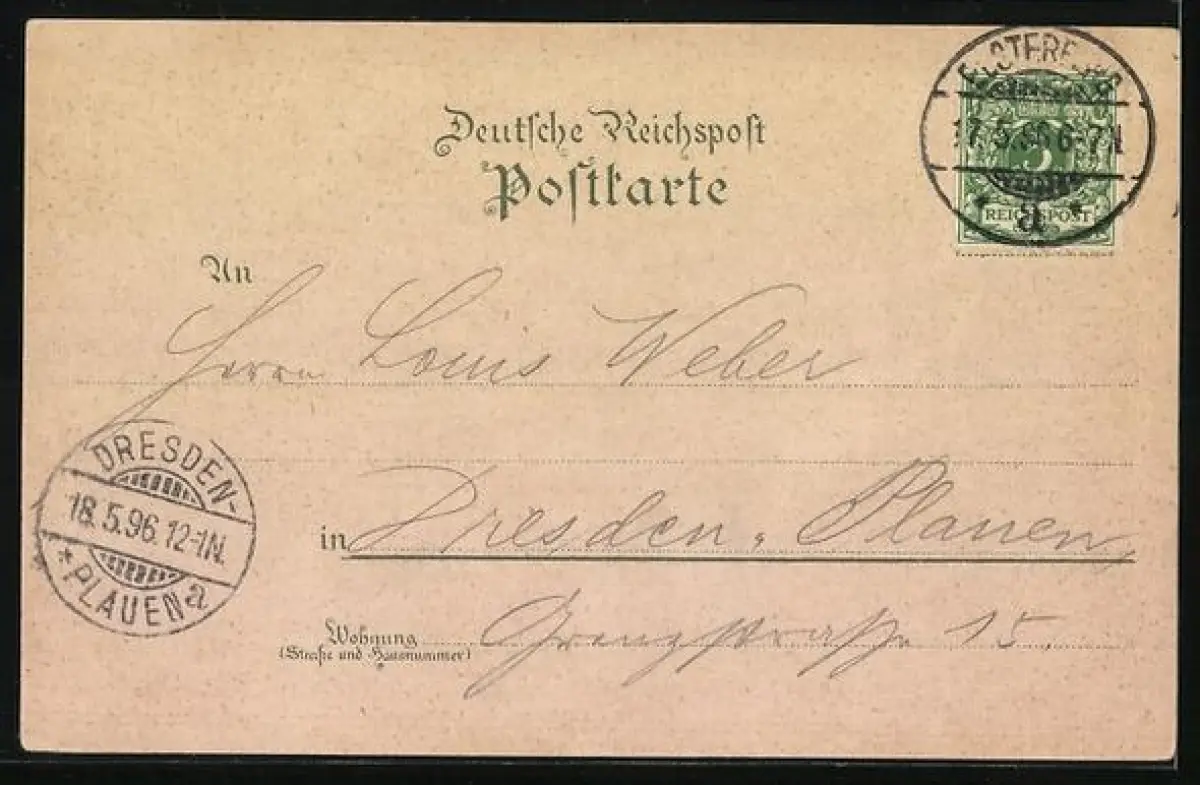 Deutsche Reichspost
Postkarte
17.5.96 6-7N
5
REICHSPOST
* a *
An
Herrn Louis Weber
DRESDEN-
18.5.96.12-1N.
* PLAUEN a
in Dresden-Plauen,
Wohnung Grenzstraße 15.
(Straße und Hausnummer)